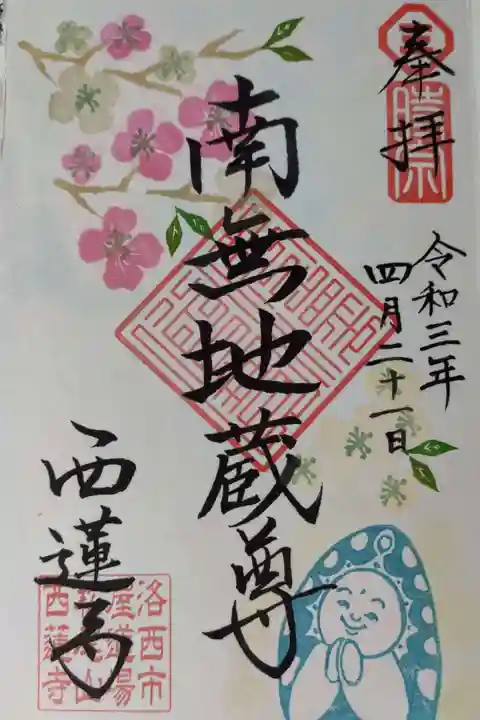 奉拝
令和三年
四月二十一日
南無地蔵尊
西蓮寺
洛西市
道場
西蓮寺